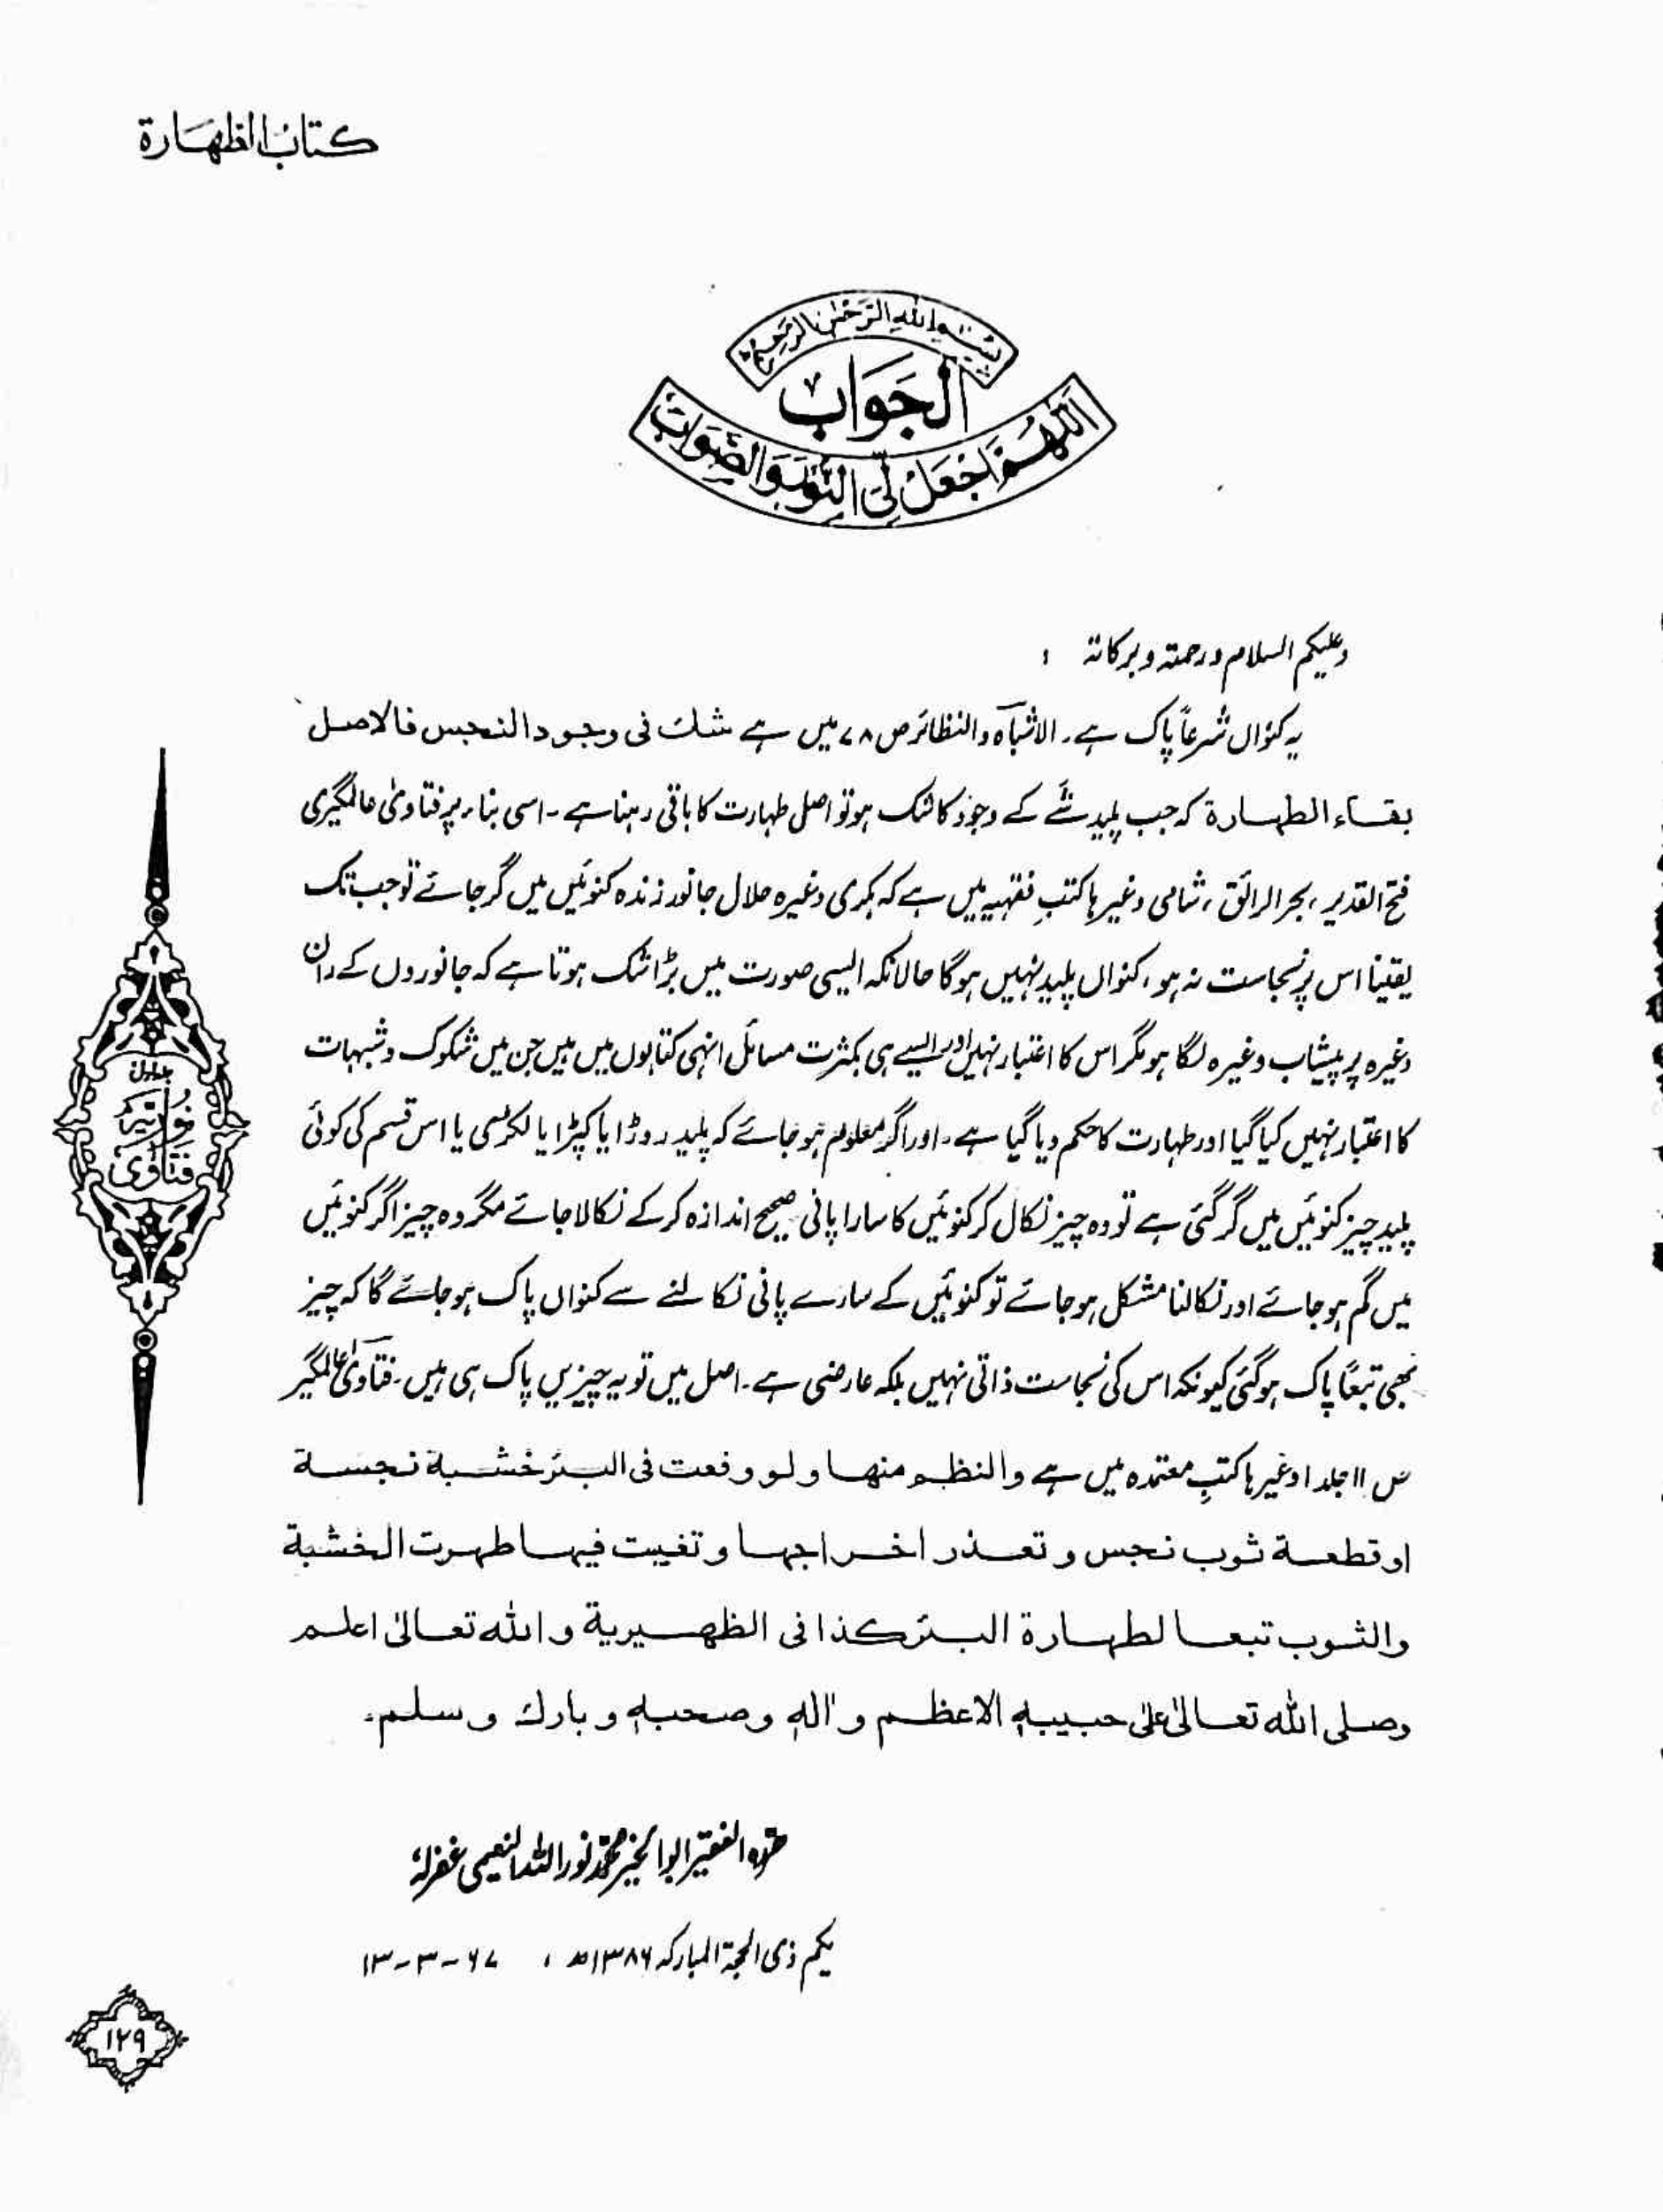 كتاب الطهارة
بسم الله الرحمن الرحيم
الجواب
اللهم اجعل لی النور والصواب
وعلیکم السلام ورحمتہ وبرکاتہ :
یہ کنواں شرعاً پاک ہے۔ الاشباہ والنظائر ص ۷۸ میں ہے شك فی وجود النجس فالاصل
بقاء الطهارة کہ جب پلید شئے کے وجود کا شک ہو تو اصل طہارت کا باقی رہنا ہے۔ اسی بناء پر فتاویٰ عالمگیری
فتح القدیر، بحر الرائق، شامی وغیرہا کتبِ فقہیہ میں ہے کہ بکری وغیرہ حلال جانور زندہ کنوئیں میں گر جائے تو جب تک
یقیناً اس پر نجاست نہ ہو، کنواں پلید نہیں ہوگا حالانکہ ایسی صورت میں بڑا شک ہوتا ہے کہ جانوروں کے ران
وغیرہ پر پیشاب وغیرہ لگا ہو مگر اس کا اعتبار نہیں اور ایسے ہی بکثرت مسائل انہی کتابوں میں ہیں جن میں شکوک وشبہات
کا اعتبار نہیں کیا گیا اور طہارت کا حکم دیا گیا ہے۔ اور اگر معلوم ہو جائے کہ پلید روڑا یا کپڑا یا لکڑی یا اس قسم کی کوئی
پلید چیز کنوئیں میں گر گئی ہے تو وہ چیز نکال کر کنوئیں کا سارا پانی صحیح اندازہ کر کے نکالا جائے مگر وہ چیز اگر کنوئیں
میں گم ہو جائے اور نکالنا مشکل ہو جائے تو کنوئیں کے سارے پانی نکالنے سے کنواں پاک ہو جائے گا کہ چیز
بھی تبعًا پاک ہو گئی کیونکہ اس کی نجاست ذاتی نہیں بلکہ عارضی ہے۔ اصل میں تو یہ چیزیں پاک ہی ہیں۔ فتاویٰ عالمگیر
ص ۱۱ جلد ۱ وغیرہا کتبِ معتمدہ میں ہے والنظم منها ولو وقعت فی البئر خشبة نجسة
او قطعة ثوب نجس و تعذر اخراجها و تغیبت فیها طهرت الخشبة
والثوب تبعا لطهارة البئر كذا فی الظهيرية و الله تعالیٰ اعلم
وصلی الله تعالیٰ علیٰ حبیبه الاعظم و اٰله وصحبه و بارك و سلم۔
حررہ الفقیر ابو الخیر محمد نور اللہ النعیمی غفرلہ
یکم ذی الحجۃ المبارکہ ۱۳۸۶ھ ، ۶۷-۳-۱۳
جلد اول
نوریہ
فتاوٰی
۱۲۹